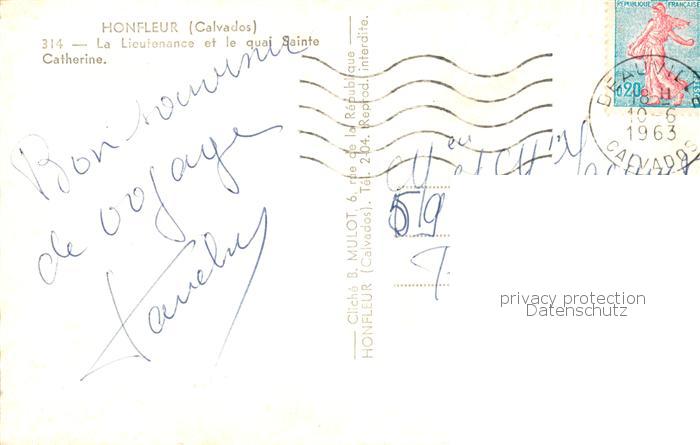 HONFLEUR (Calvados)
314 — La Lieutenance et le quai Sainte
Catherine.
Bon souvenir
de voyage
Cliché B. MULOT, 6, rue de la République —
HONFLEUR (Calvados). Tél. 2-04. Reprod. interdite.
REPUBLIQUE FRANÇAISE
0,20
POSTES
DEAUVILLE
18 H
10-6
1963
CALVADOS
et
59
privacy protection
Datenschutz